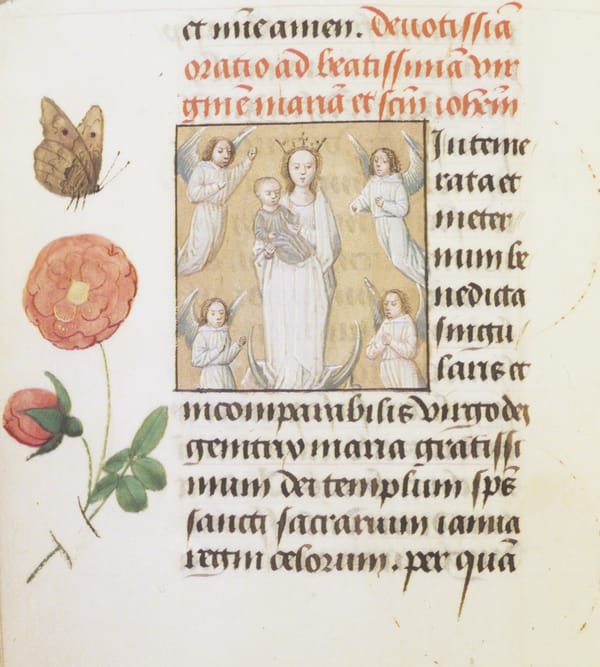 et mūe amen. Deuotissiā
oratio ad beatissimā vir
ginē mariā et scm̄ iohēm
Inteme
rata et
ineter
num be
nedicta
singu
laris et
incomparabilis virgo dei
genitrix maria gratissi
mum dei templum sp̄s
sancti sacrarium ianua
regni celorum. per quā